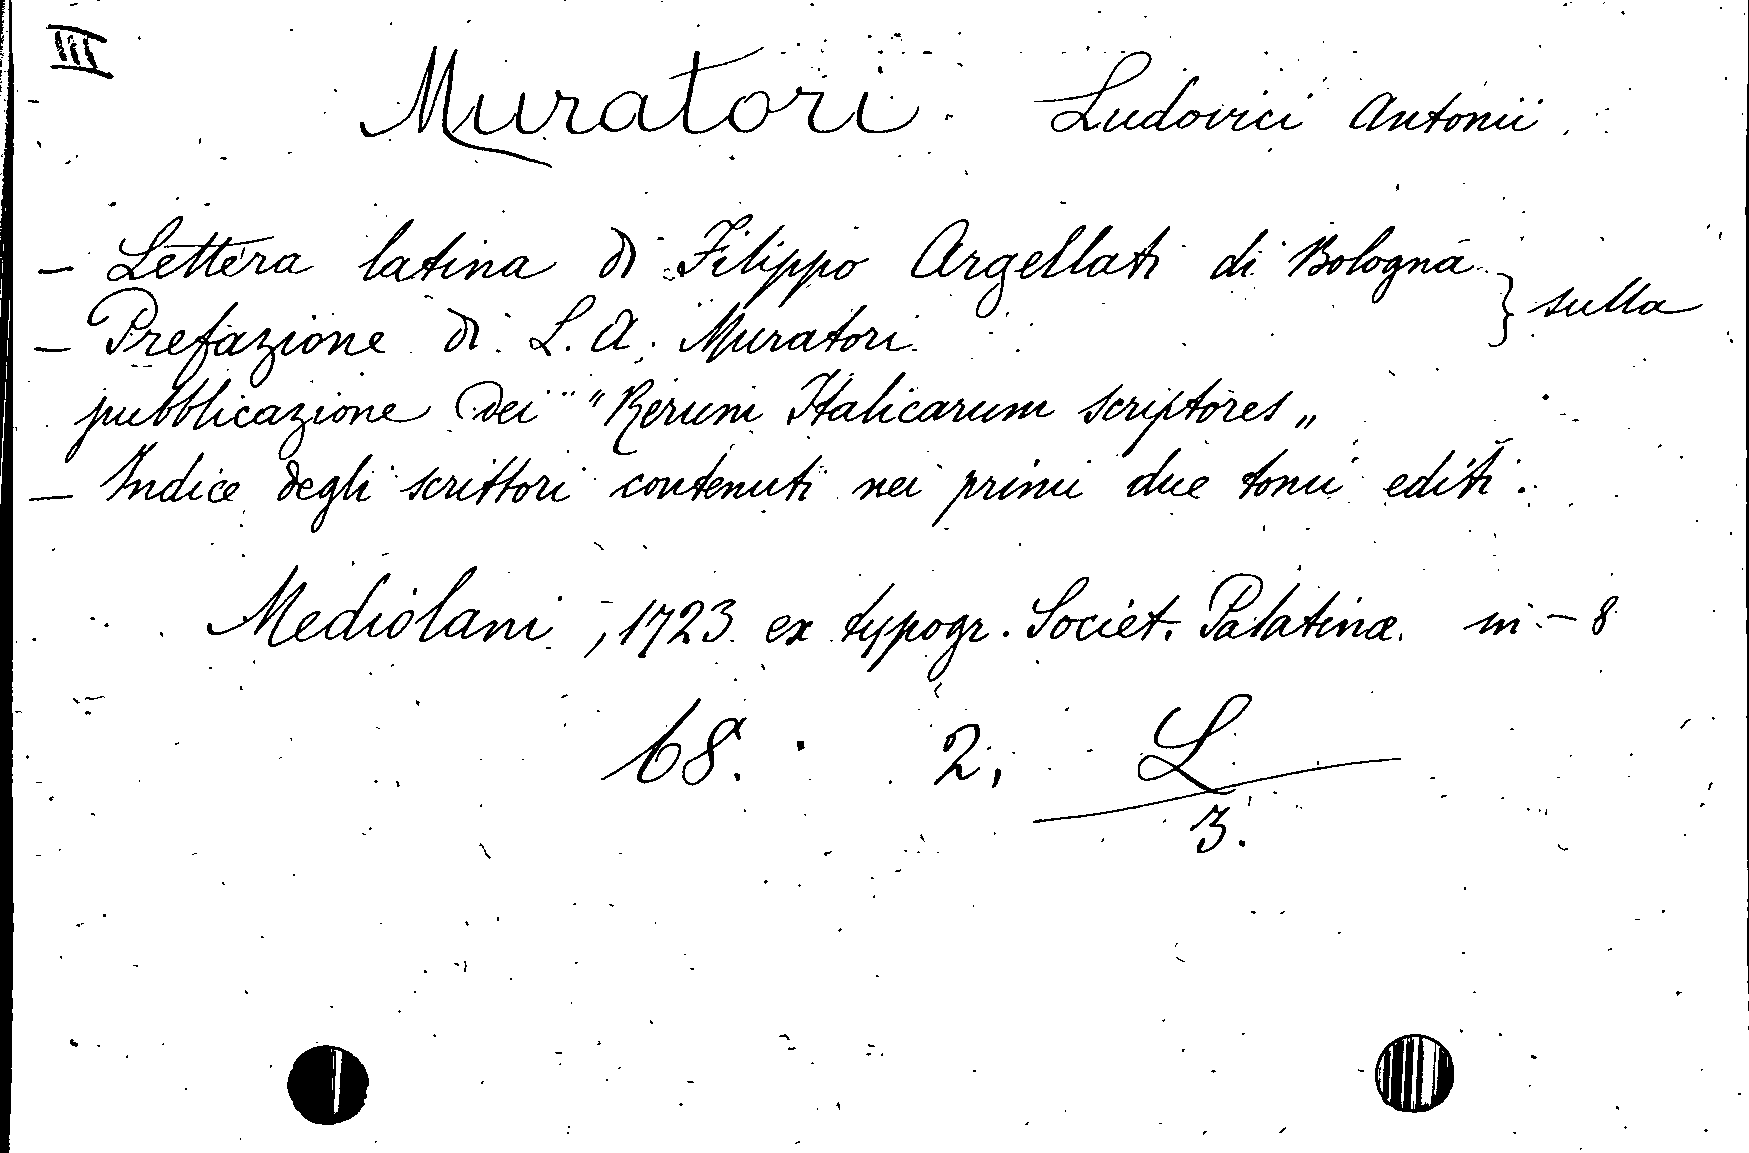 III
Muratori Ludovici Antonii
- Lettera latina di Filippo Argellati di Bologna } sulla
- Prefazione di L. A. Muratori
pubblicazione dei "Rerum Italicarum scriptores„
- Indice degli scrittori contenuti nei primi due tomi editi.
Mediolani, 1723 ex typogr. Societ. Palatinæ. in - 8
68. 2, L
3.